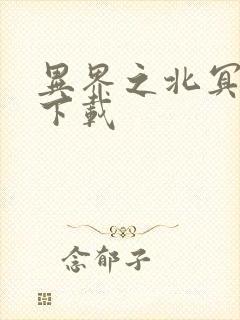 異界之北冥
下載
念郁子